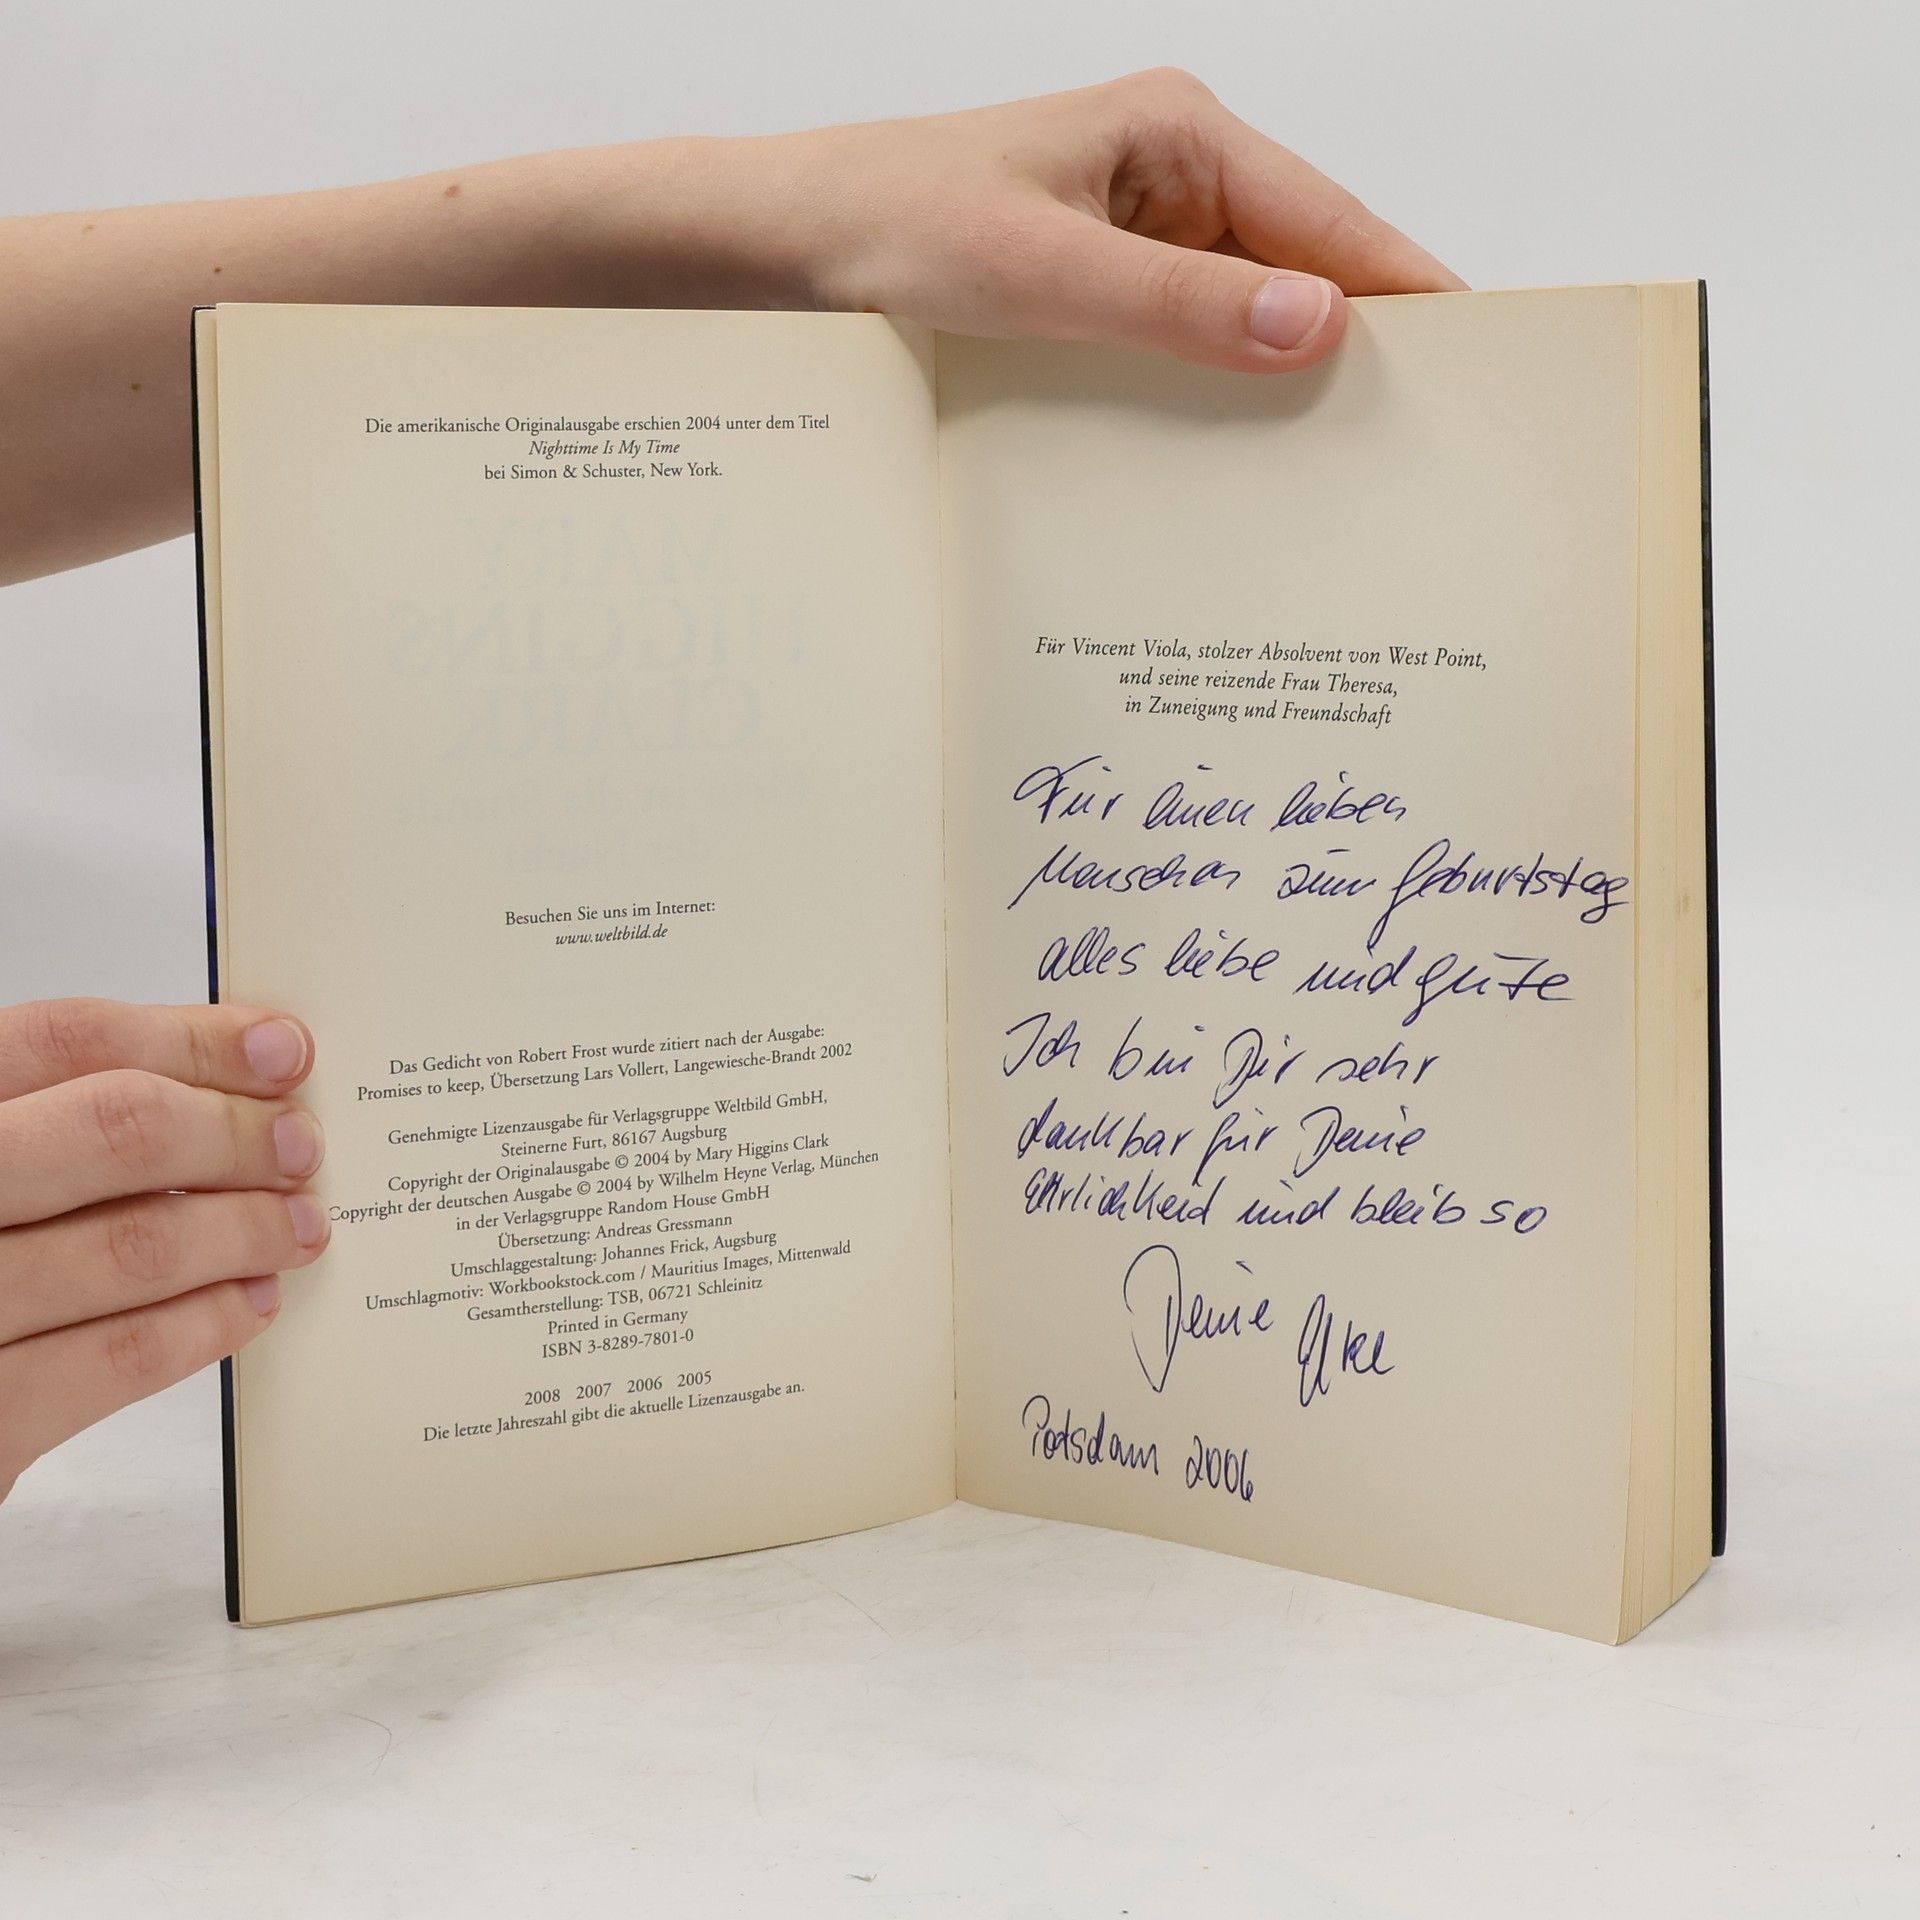 Die amerikanische Originalausgabe erschien 2004 unter dem Titel
Nighttime Is My Time
bei Simon & Schuster, New York.
Besuchen Sie uns im Internet:
www.weltbild.de
Das Gedicht von Robert Frost wurde zitiert nach der Ausgabe:
Promises to keep, Übersetzung Lars Vollert, Langewiesche-Brandt 2002
Genehmigte Lizenzausgabe für Verlagsgruppe Weltbild GmbH,
Steinerne Furt, 86167 Augsburg
Copyright der Originalausgabe © 2004 by Mary Higgins Clark
Copyright der deutschen Ausgabe © 2004 by Wilhelm Heyne Verlag, München
in der Verlagsgruppe Random House GmbH
Übersetzung: Andreas Gressmann
Umschlaggestaltung: Johannes Frick, Augsburg
Umschlagmotiv: Workbookstock.com / Mauritius Images, Mittenwald
Gesamtherstellung: TSB, 06721 Schleinitz
Printed in Germany
ISBN 3-8289-7801-0
2008 2007 2006 2005
Die letzte Jahreszahl gibt die aktuelle Lizenzausgabe an.
Für Vincent Viola, stolzer Absolvent von West Point,
und seine reizende Frau Theresa,
in Zuneigung und Freundschaft
Für einen lieben
Menschen zum Geburtstag
alles liebe und gute
Ich bin Dir sehr
dankbar für Deine
Ehrlichkeit und bleib so
Deine Elke
Potsdam 2006